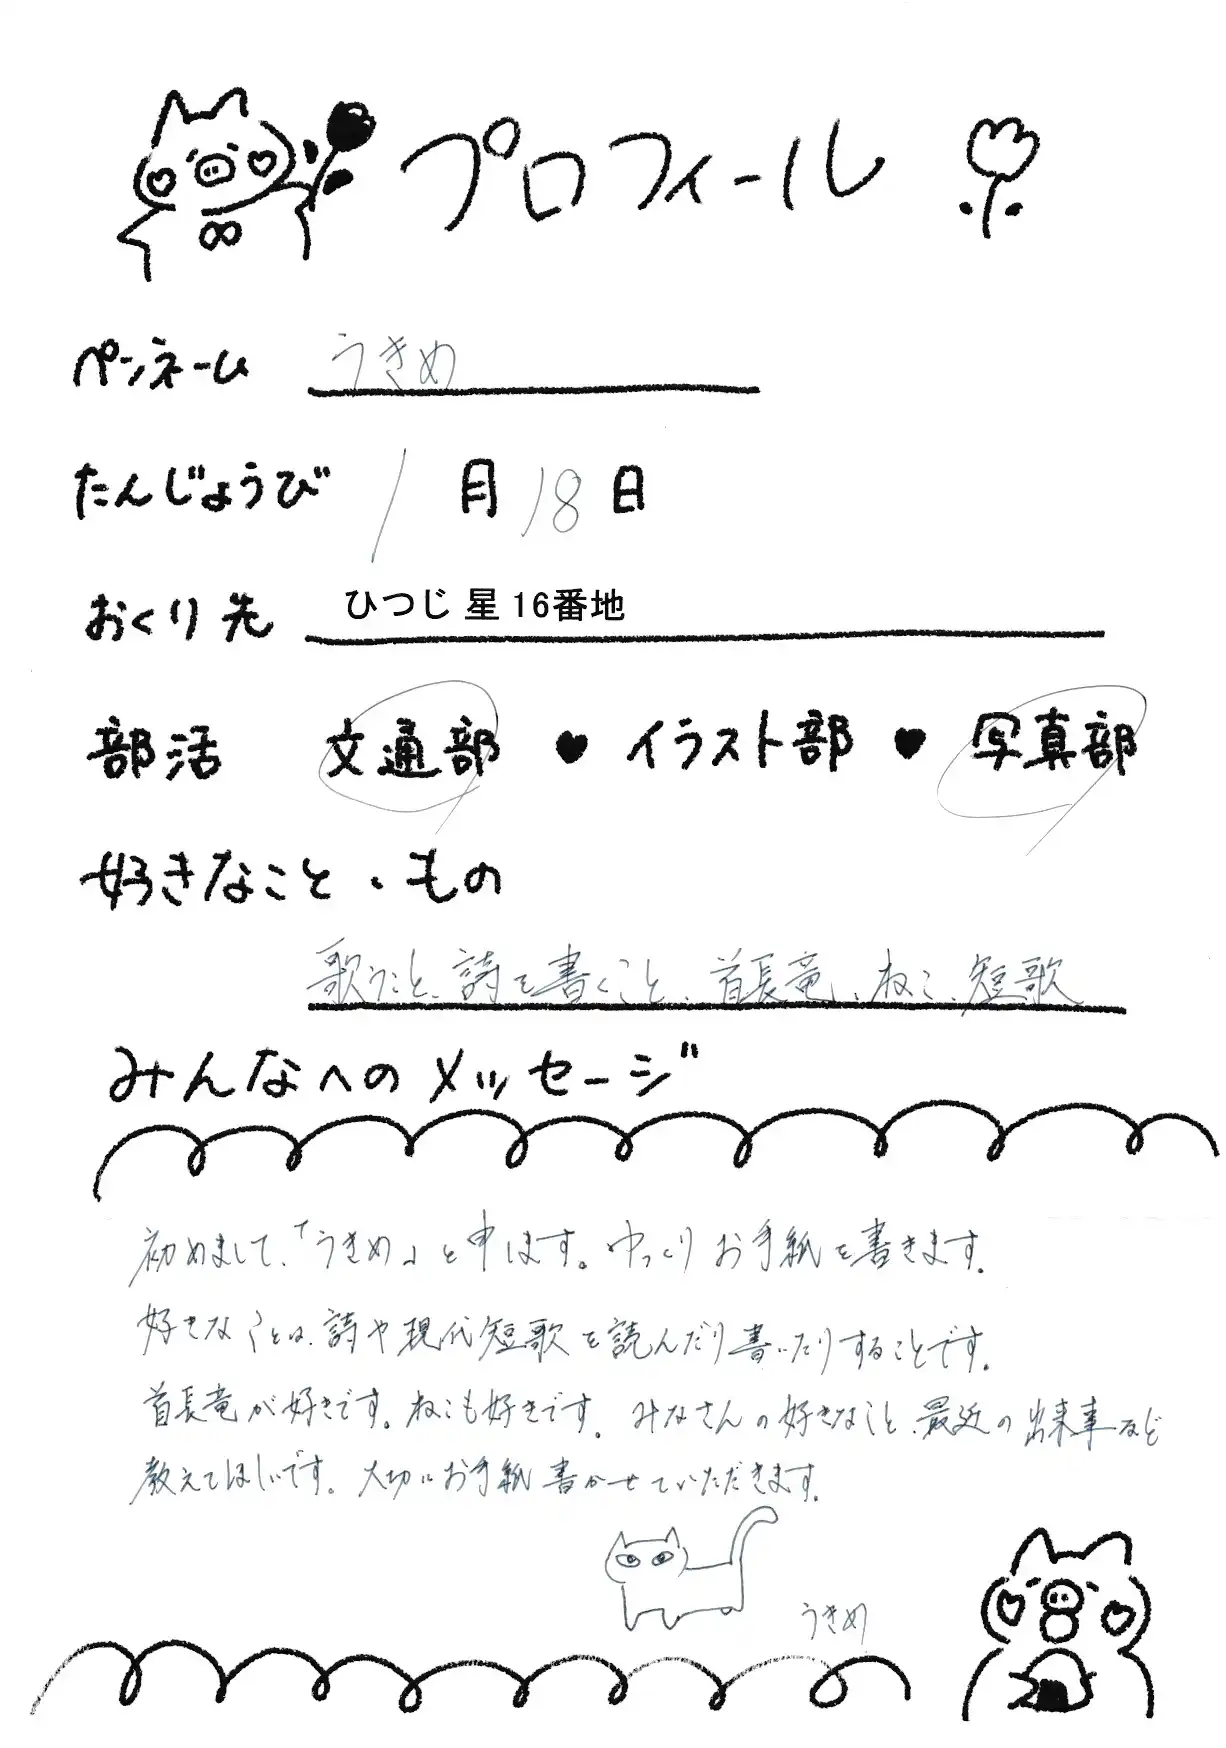 プロフィール
ペンネーム うきめ
たんじょうび 1月18日
おくり先 ひつじ 星 16番地
部活 文通部 ♥ イラスト部 ♥ 写真部
好きなこと、もの
歌うこと、詩を書くこと、首長竜、ねこ、短歌
みんなへのメッセージ
初めまして、「うきめ」と申します。ゆっくりお手紙を書きます。
好きなことは、詩や現代短歌を読んだり書いたりすることです。
首長竜が好きです。ねこも好きです。みなさんの好きなこと、最近の出来事など
教えてほしいです。大切にお手紙書かせていただきます。
うきめ